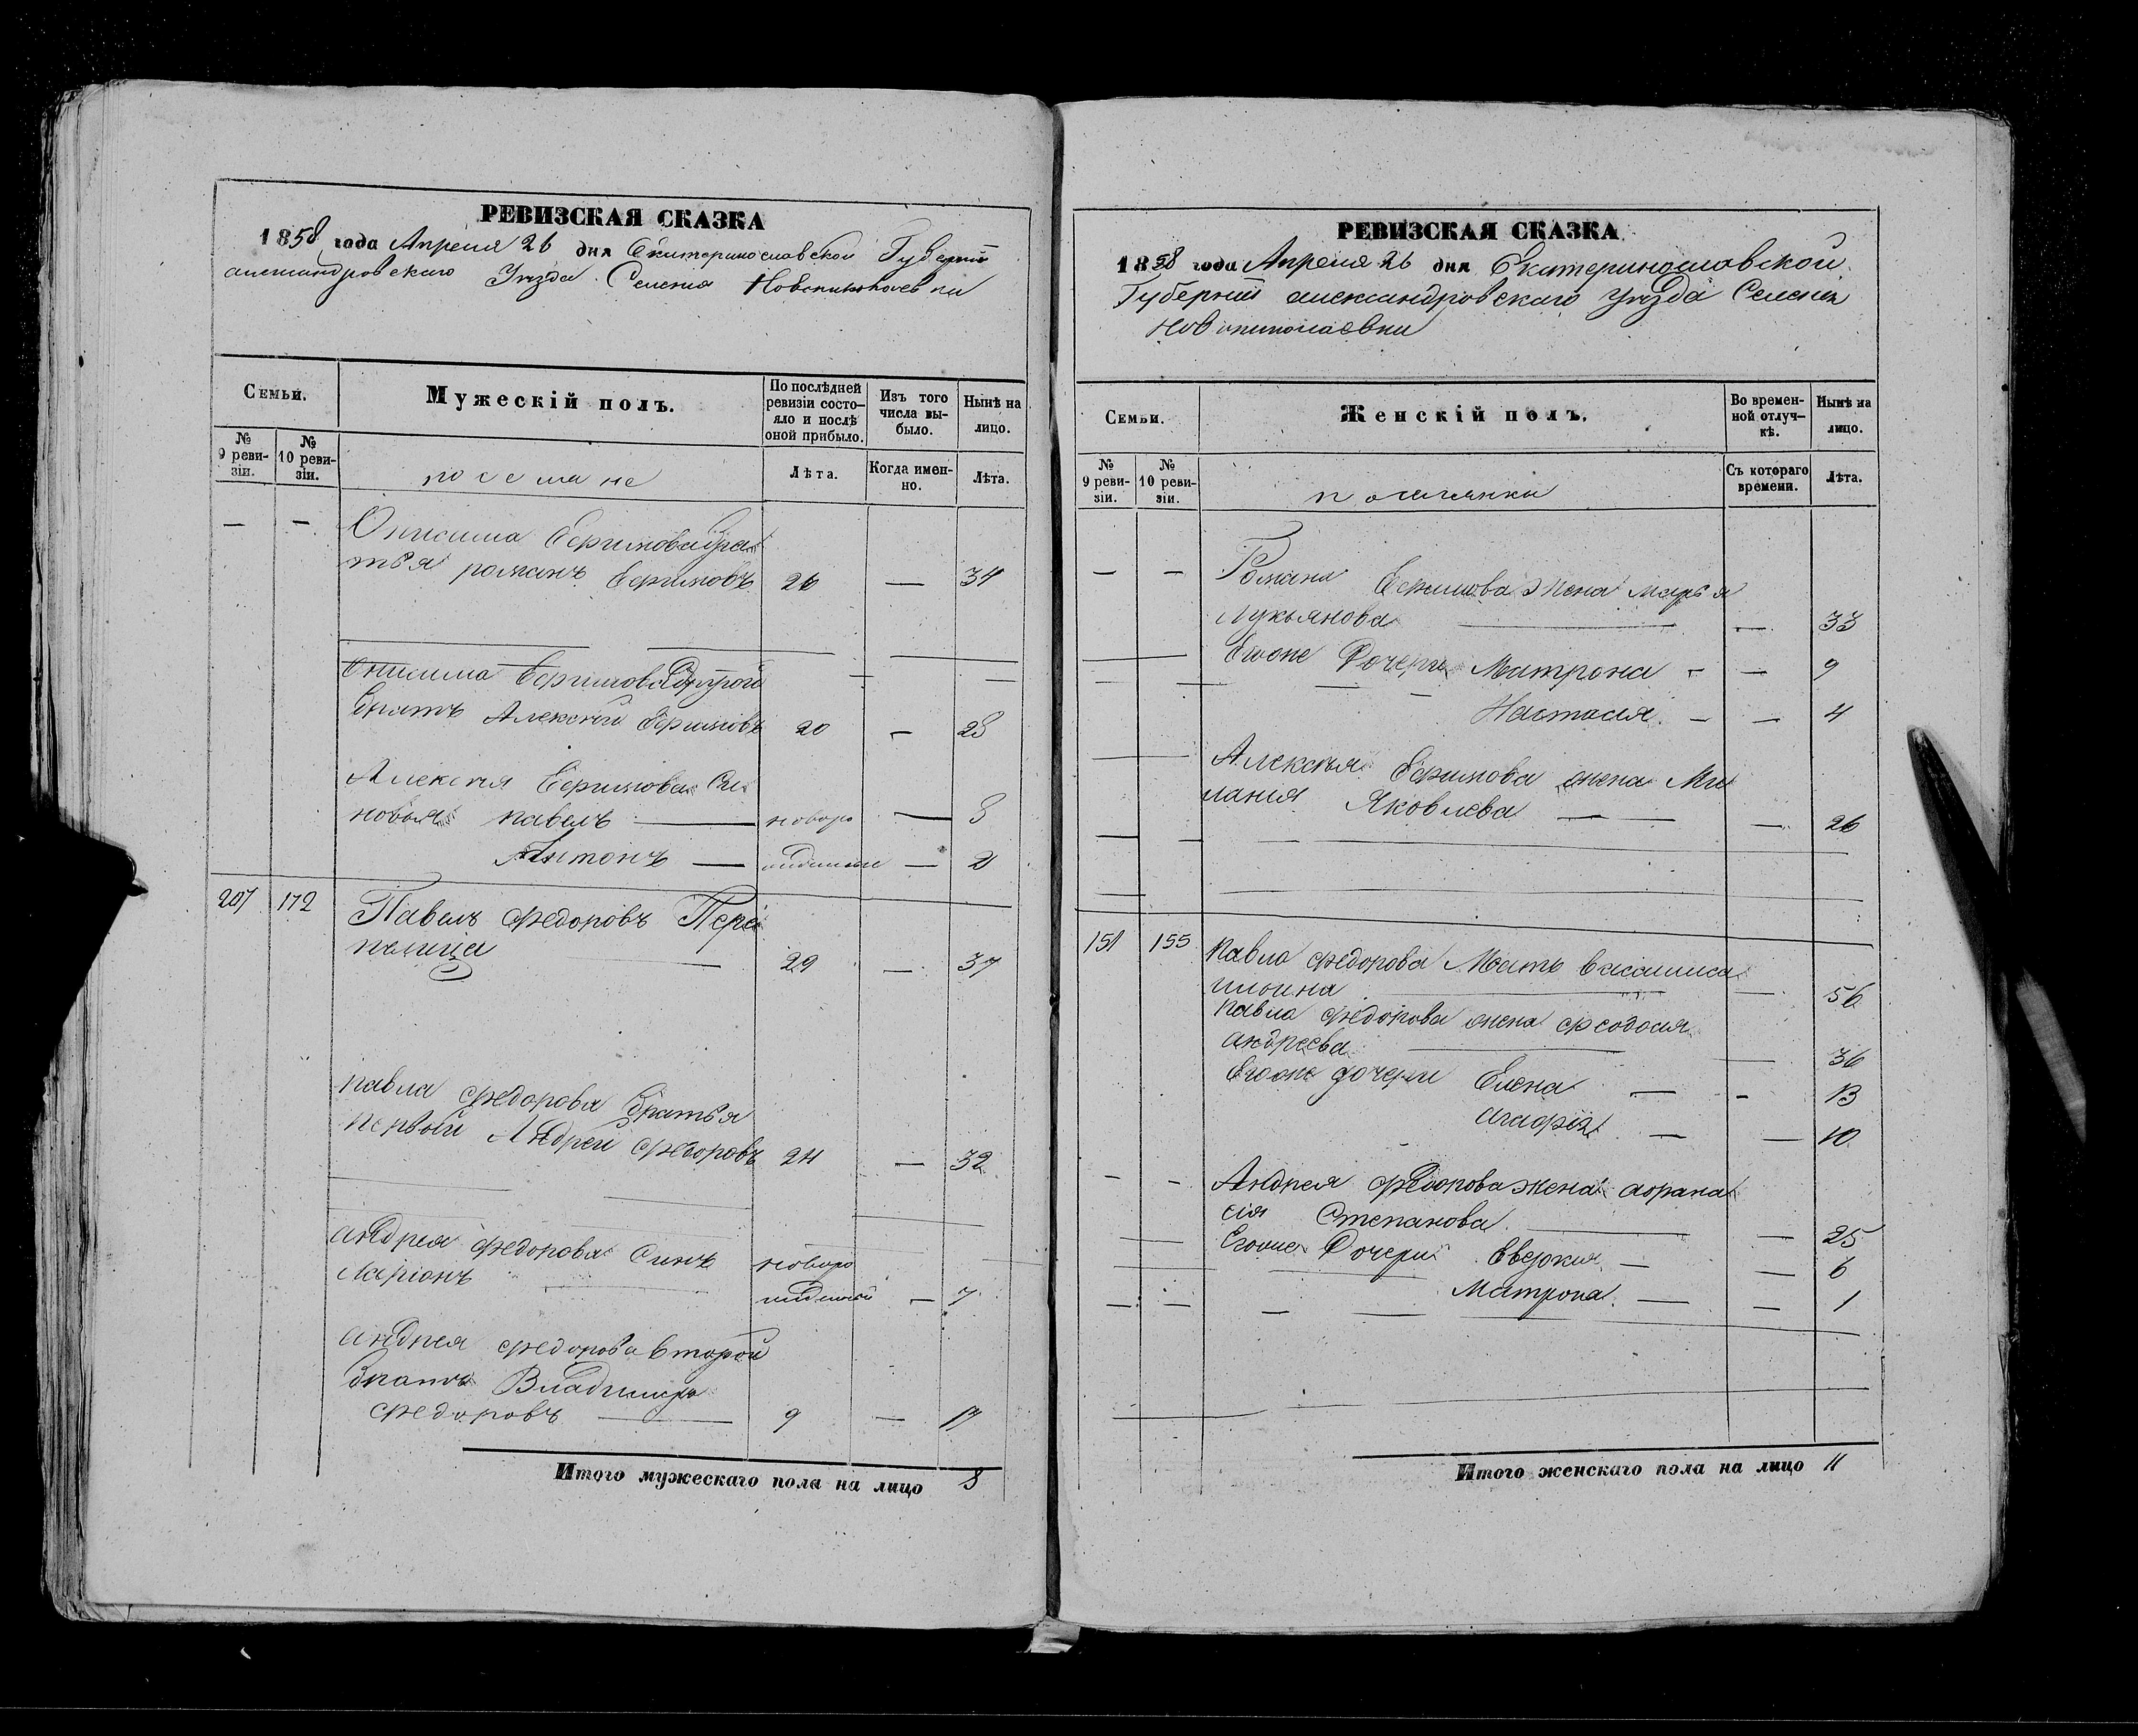 РЕВИЗСКАЯ СКАЗКА
1858 года Апреля 26 дня Екатеринославской Губернии
александровскаго Уезда Селения Новониколаевки
Семьи.
Мужескій полъ.
По послѣдней ревизіи состо-
яло и послѣ оной прибыло.
Изъ того числа вы-
было.
Нынѣ на лицо.
№ 9 реви-
зіи.
№ 10 реви-
зіи.
поселяне
Лѣта.
Когда имен-
но.
Лѣта.
— — Онисима Ефимова бра
тья романъ Ефимовъ 26 — 34
Онисима Ефимова другой
братъ Алексей Ефимовъ 20 — 28
Алексея Ефимова Си
новья павелъ — новоро — 8
Антонъ — — 2
207 172 Павелъ Федоровъ Пере
пелица 29 — 37
павла Федорова братья
первый Андрей Федоровъ 24 — 32
андрея Федорова Синъ новоро
Ларионъ — 7
андрея Федорова второй
братъ Владимиръ
Федоровъ — 9 — 17
Итого мужескаго пола на лицо 8
РЕВИЗСКАЯ СКАЗКА
1858 года Апреля 26 дня Екатеринославской
Губернии александровскаго уезда Селения
Новониколаевки
Семьи.
Женскій полъ.
Во времен-
ной отлуч-
кѣ.
Нынѣ на лицо.
№ 9 реви-
зіи.
№ 10 реви-
зіи.
поселянки
Съ котораго времени.
Лѣта.
— — Романа Ефимова жена марья
Лукьянова — — 33
Егоже Дочери Матрона — — 9
Настасия — — 4
Алексея Ефимова жена Ми
лания Яковлева — — 26
151 155 павла Федорова Мать василиса
ильина — — 56
павла Федорова жена феодосия
андреева — — 36
Егоже дочери Елена — — 13
агафия — — 10
— — Андрея Федорова жена афана
сия Степанова — — 25
Егоже Дочери Евдокия — — 6
Матрона — — 1
Итого женскаго пола на лицо 11